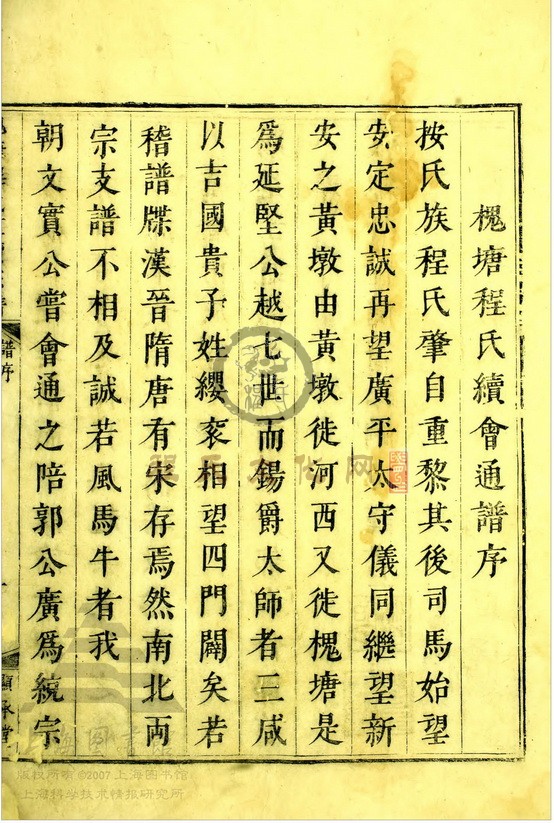 槐塘程氏續會通譜序
按氏族程氏肇自重黎其後司馬始望
安定忠誠再望廣平太守儀同繼望新
安之黃墩由黃墩徙河西又徙槐塘是
為延堅公越七世而錫爵太師者三咸
以吉國貴予姓纓衮相望四門闢矣若
稽譜牒漢晉隋唐有宋存焉然南北両
宗支譜不相及誠若風馬牛者我
朝文實公嘗會通之陪郭公廣為統宗
譜序
顯承堂
版权所有©2007上海图书馆
上海科学技术情报研究所